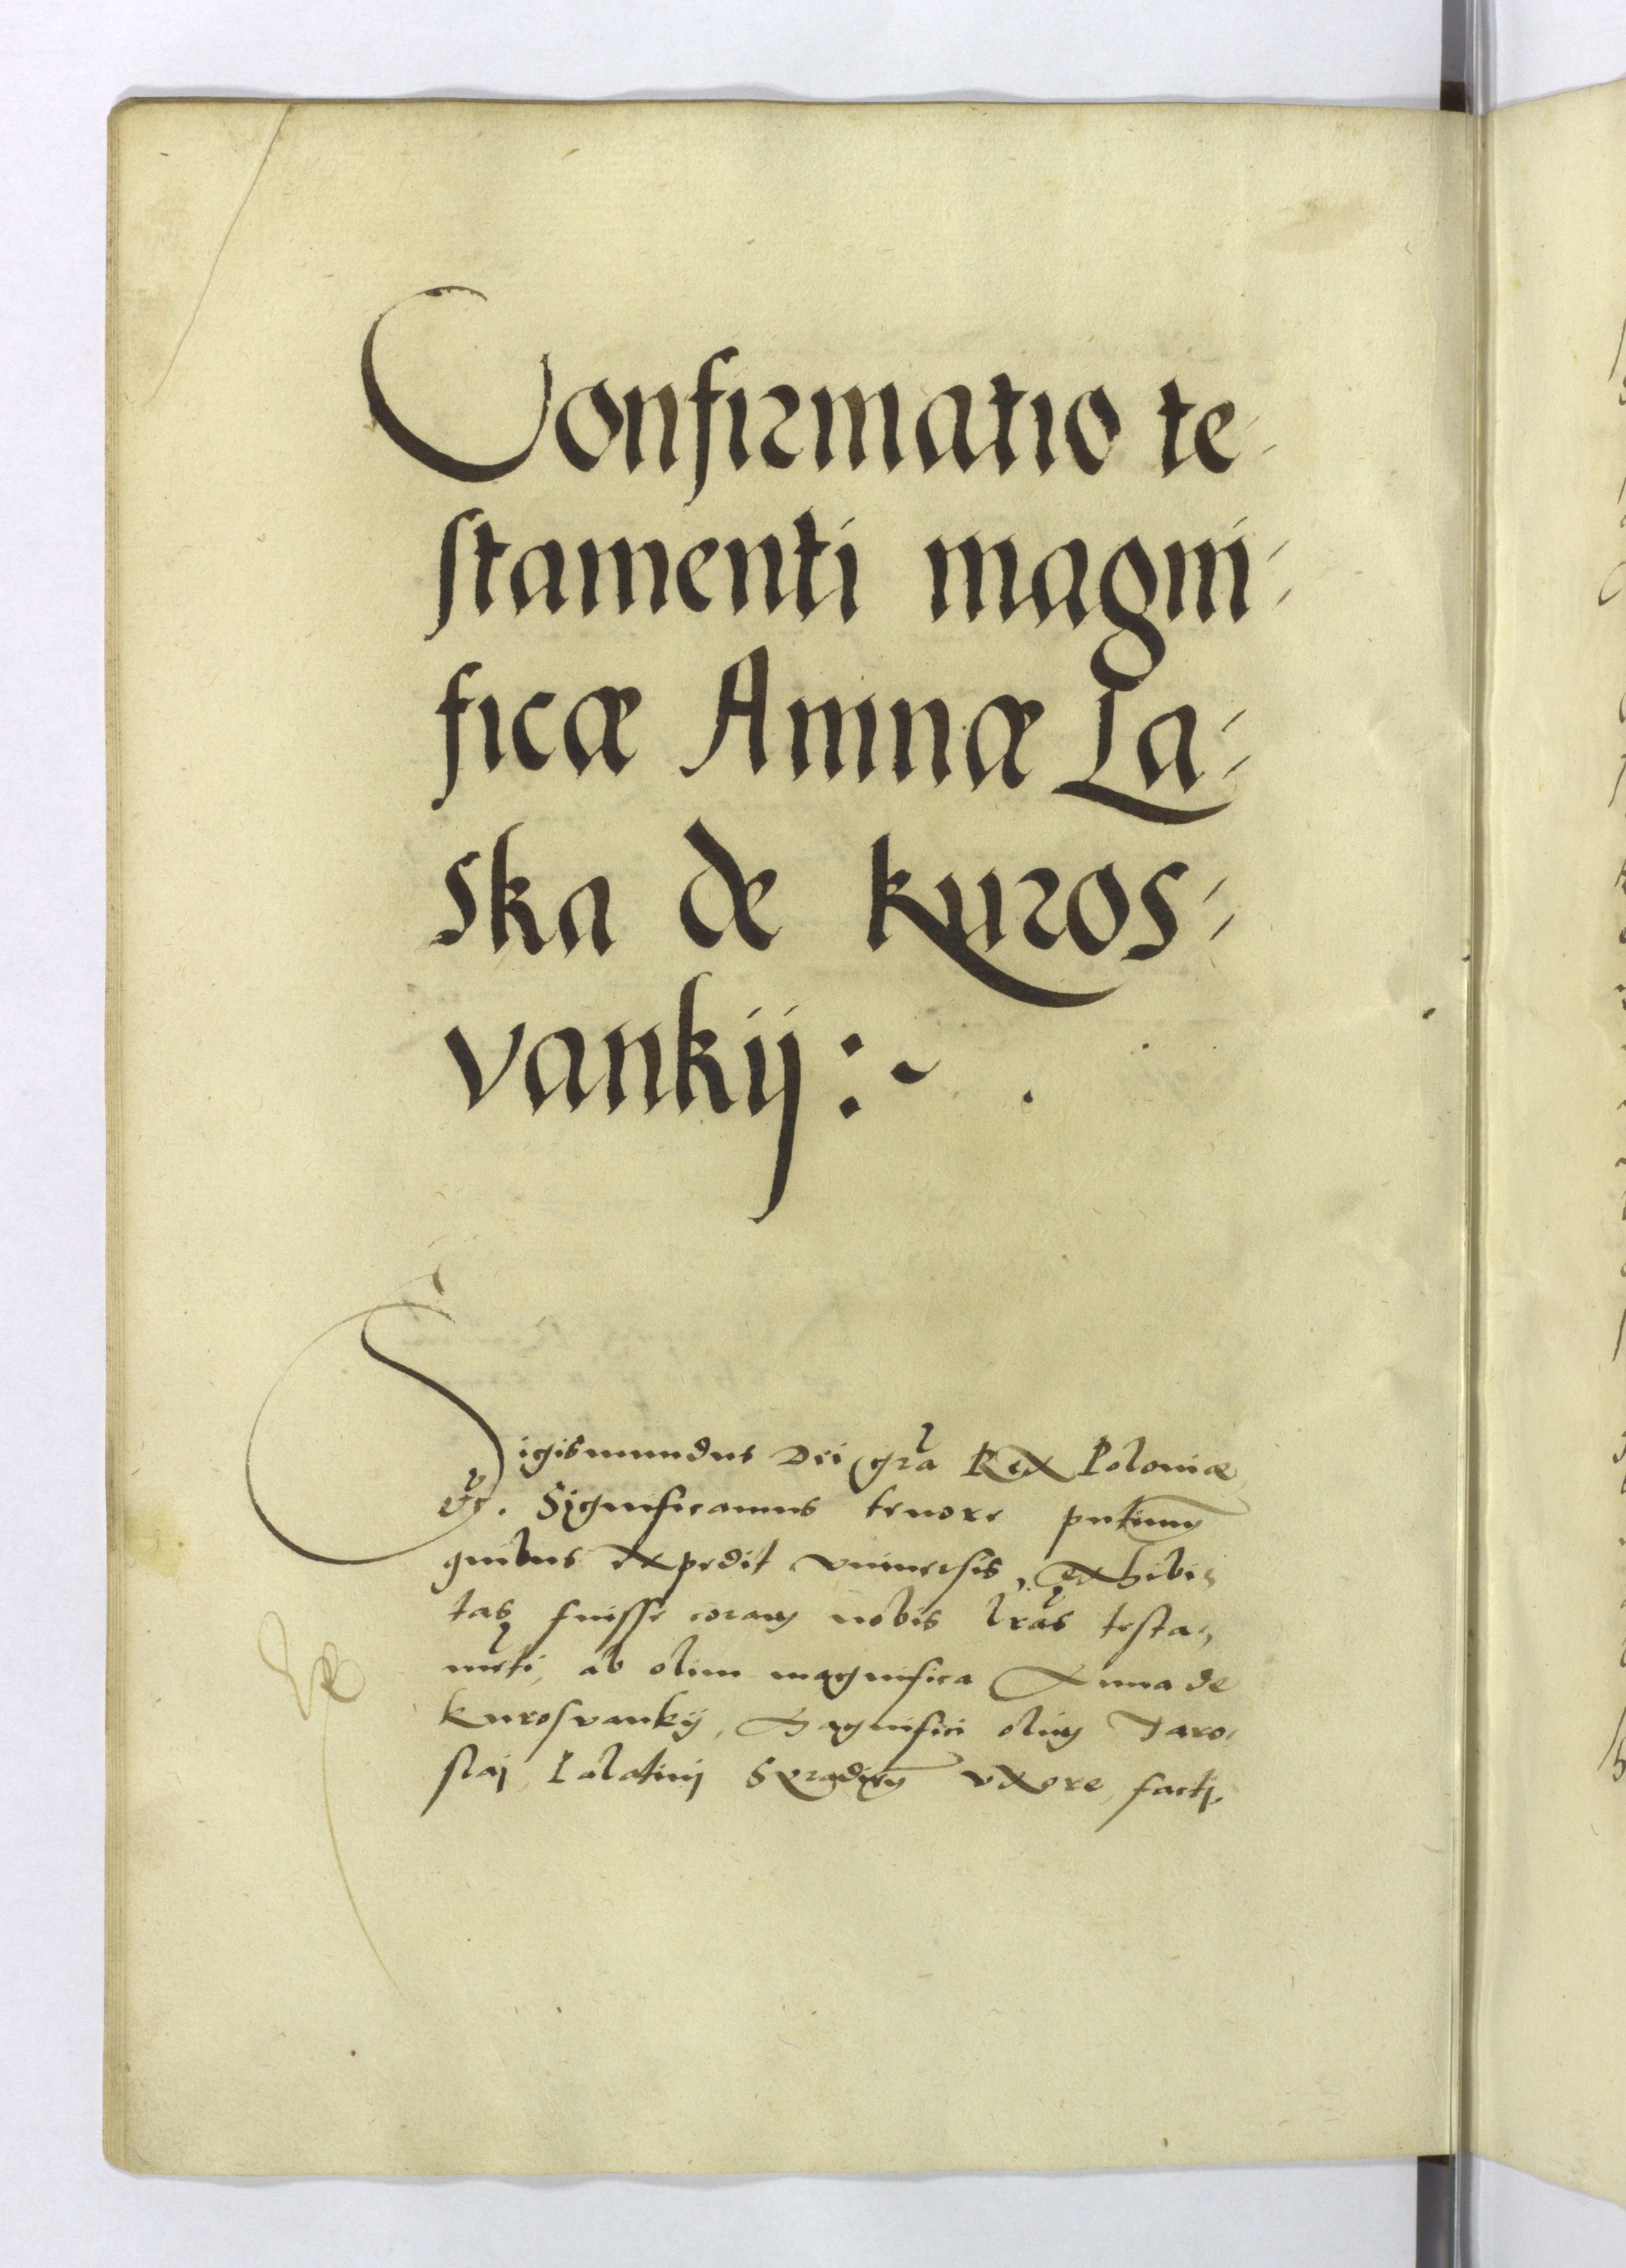 Confirmatio te-
stamenti magni-
ficæ Annnæ La-
ska de kuros-
vankij :~
Sigismundus Dei gra Rex Poloniæ
etc. Significamus tenore pntium
quibus expedit vniuersis, exhibi-
tas fuisse coram nobis lras testa-
meti, ab olim magnifica Anna de
kurosvankij, Magnifici olim Jaro-
slai Palatini Syradien vxore, facti,